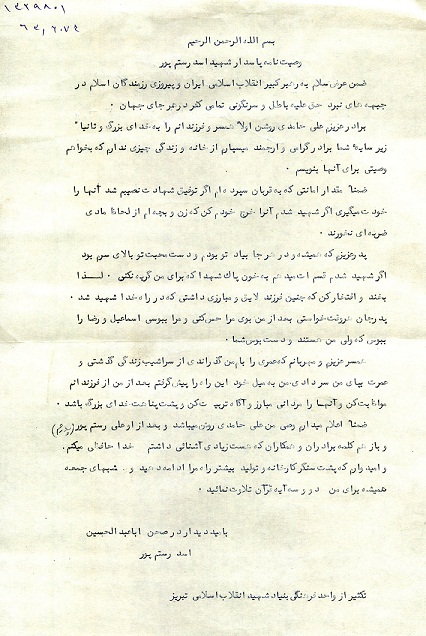 ۱۲۲۹۸۰۱
۶۳,۶۰۷۴
بسم الله الرحمن الرحیم
وصیت نامه پاسدار شهید اسد رستم پور
ضمن عرض سلام به رهبر کبیر انقلاب اسلامی ایران و پیروزی رزمندگان اسلام در
جبهه های نبرد حق علیه باطل و سرنگونی تمامی کفر در هر جای جهان .
برادر عزیزم علی حامدی روشن اولا" همسر و فرزندانم را به خدای بزرگ و ثانیا"
زیر سایه شما برادر گرامی و ارجمند میسپارم از خانه و زندگی چیزی ندارم که بخواهم
وصیتی برای آنها بنویسم .
ضمنا" مقدار امانتی که به قربان سپرده ام اگر توفیق شهادت نصیبم شد آنها را
خودت میگیری اگر شهید شدم آنرا خرج خودم کن که زن و بچه ام از لحاظ مادی
ضربه ای نخورند .
پدر عزیزم که همیشه و در هر جا بیاد تو بودم و دست محبت تو بالای سرم بود
اگر شهید شدم قسمت میدهم به خون پاک شهدا که برای من گریه نکنی . لذا
بخند و افتخار کن که چنین فرزند لایق و مبارزی داشتی که در راه خدا شهید شد .
پدر جان هر وقت خواستی بعد از من بوی مرا حس کنی و مرا ببوسی اسماعیل و رضا را
ببوس که ولی من هستند و دست بوس شما .
همسر عزیز و مهربانم که عمری را با من گذراندی از سراشیب زندگی گذشتی و
عمرت بپای من سر دادی من به میل خود این راه را پیش گرفتم بعد از من از فرزندانم
مواظبت کن و آنها را مردانی مبارز و آگاه تربیت کن و پشت پناهت خدای بزرگ باشد .
ضمنا" اعلام میدارم وصی من علی حامدی روشن میباشد و بعد از او علی رستم پور
و باز هم کلمه برادران و همکاران که هست زیادی آشنائی داشتم خدا حافظی میکنم .
و امیدوارم که پشت سنگر کارخانه و تولید بیشتر راه مرا ادامه دهید و .. شبهای جمعه
همیشه برای من دو و سه آیه قرآن تلاوت نمائید .
بامید دیدار در صحن اباعبدالحسین
اسد رستم پور
تکثیر از واحد فرهنگی بنیاد شهید انقلاب اسلامی تبریز